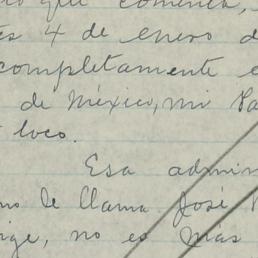 que comienza,
es 4 de enero d
completamente e
de México, mi Pa
loco.
Esa admin
no se llama José
ige, no es más